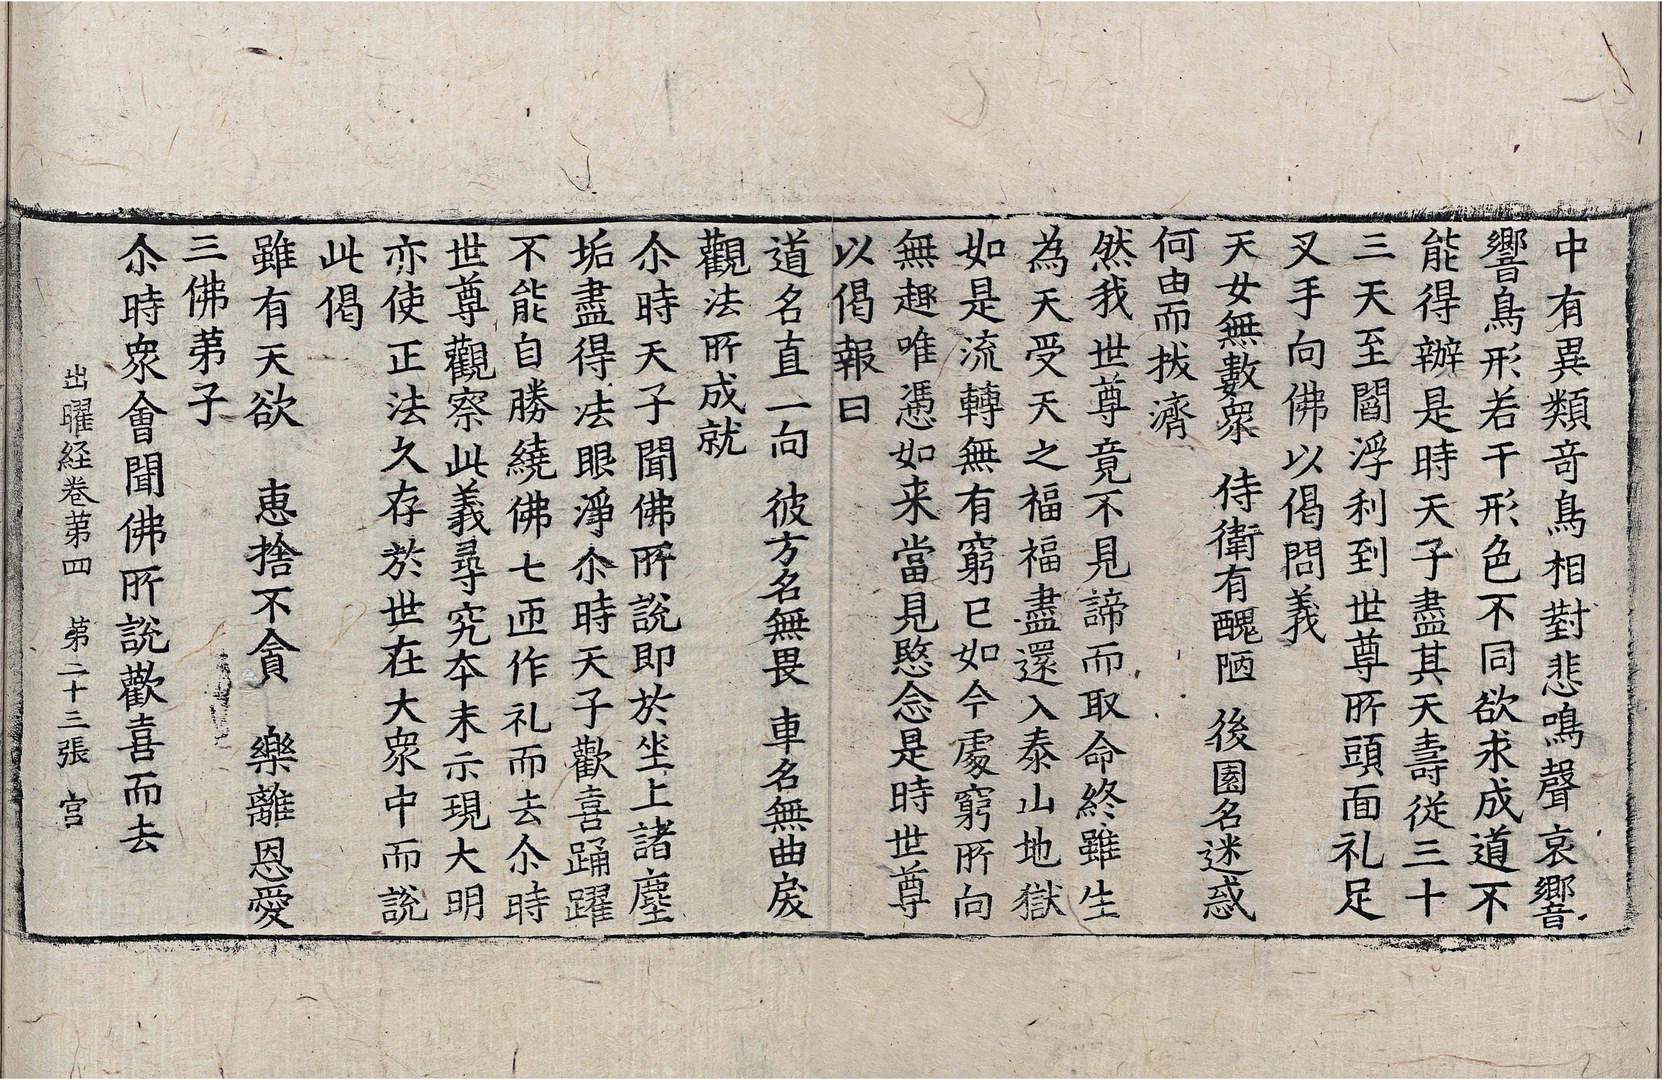 中有異類奇鳥相對悲鳴聲哀響
響鳥形若干形色不同欲求成道不
能得辦是時天子盡其天壽從三十
三天至閻浮利到世尊所頭面礼足
叉手向佛以偈問義
天女無數衆　侍衛有醜陋　後園名迷惑
何由而拔濟
然我世尊竟不見諦而取命終雖生
為天受天之福福盡還入泰山地獄
如是流轉無有窮已如今處窮所向
無趣唯憑如来當見愍念是時世尊
以偈報曰
道名直一向　彼方名無畏　車名無曲戾
觀法所成就
尒時天子聞佛所說即於坐上諸塵
垢盡得法眼淨尒時天子歡喜踊躍
不能自勝繞佛七匝作礼而去尒時
世尊觀察此義尋究本末示現大明
亦使正法久存於世在大衆中而說
此偈
雖有天欲　惠捨不貪　樂離恩愛
三佛弟子
尒時衆會聞佛所說歡喜而去
出曜経卷第四　第二十三張　宫